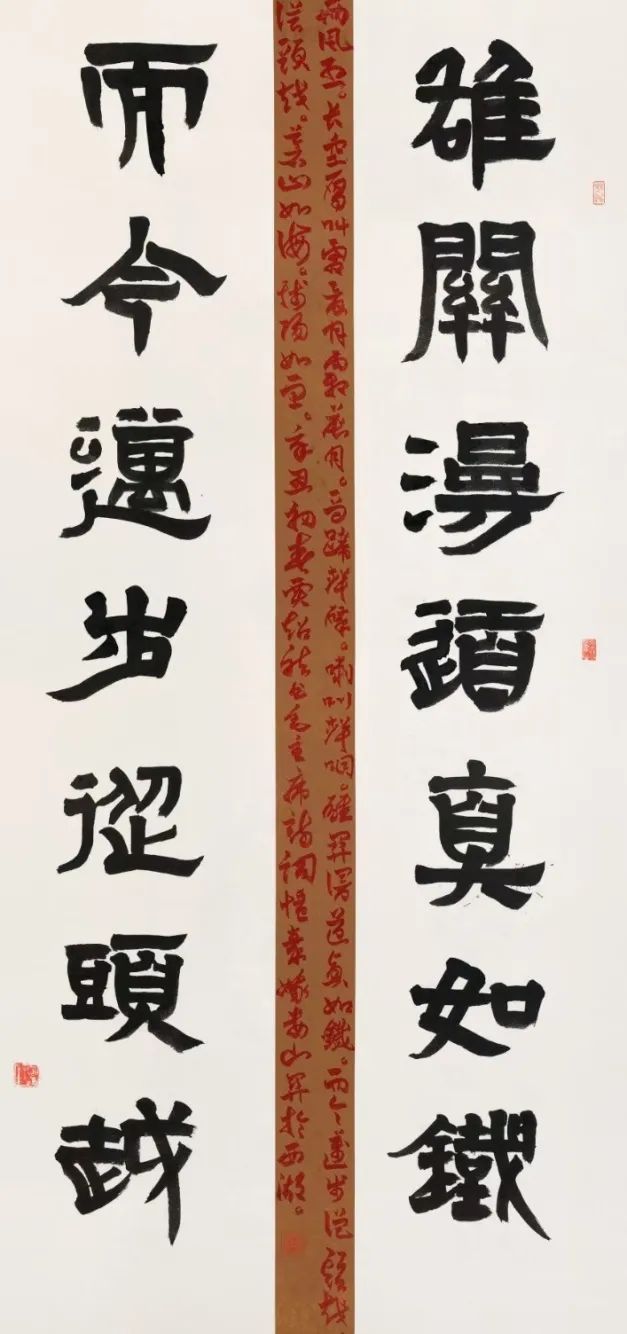 雄關漫道真如鐵
西風烈。长空雁叫霜晨月霜晨月。馬蹄聲碎。喇叭聲咽。雄關漫道真如鐵。而今邁步從頭越。
從頭越。蒼山如海。殘陽如血。辛丑初春书毛主席詩詞憶秦娥娄山關於西湖。
而今邁步從頭越